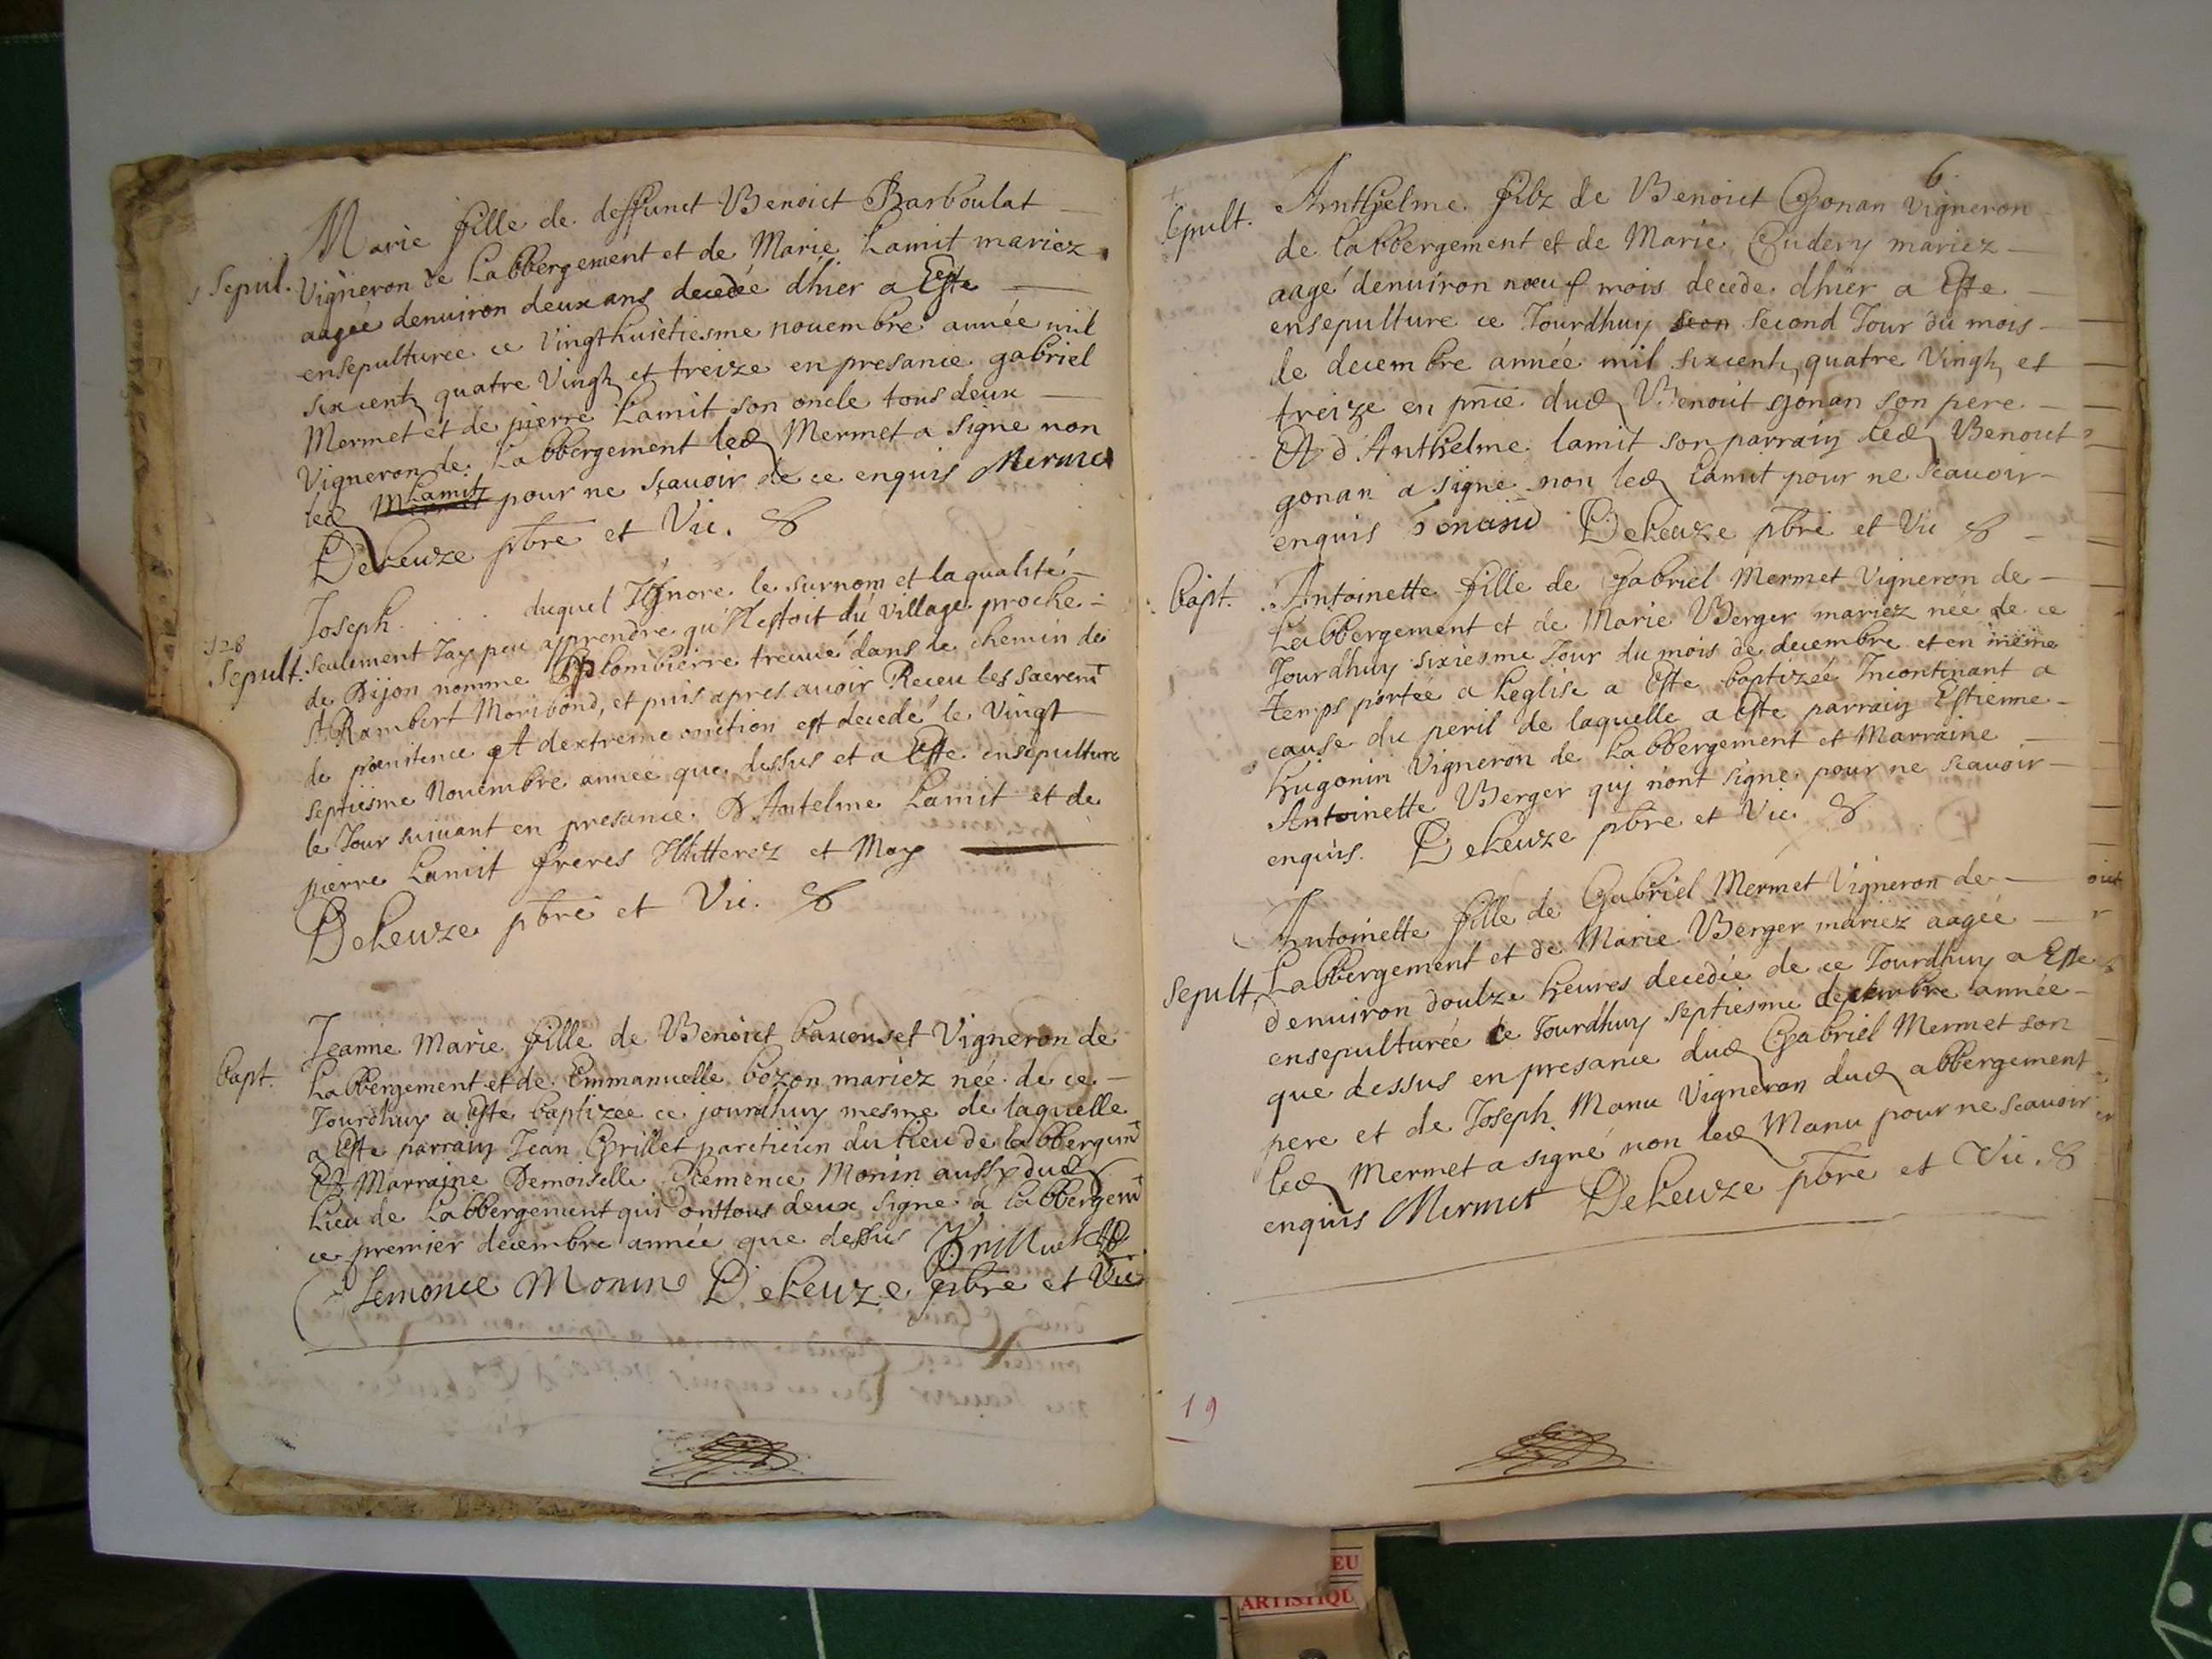 Marie fille de deffunct Benoict Barboulat
Sepul. Vigneron de Labbergement et de Marie Lamit mariez
aagée denuiron deux ans decedée dhier a Esté
ensepulturee ce Vingthuictiesme nouembre année mil
sixcentz quatre Vingtz et treize en presance gabriel
Mermet et de pierre Lamit son oncle tous deux
Vigneron de Labbergement led Mermet a signe non
led Lamit pour ne sçauoir de ce enquis Mermet
DeLeuze pbre et Vic. &
Joseph . . . . duquel J'Ignore le surnom et la qualité
128
Sepult. seulement Jay peu apprendre qu'Il estoit du village proche
de Dijon nomme Plombierre treuué dans le chemin de
St Rambert Moribond, et puis apres auoir Receu les sacremt
de pœnitence et dextreme onction est decedé le Vingt
septiesme Nouembre année que dessus et a Esté ensepulturé
le Jour suiuant en presance D'Antelme Lamit et de
pierre Lamit freres Illitterez et Moy
DeLeuze pbre et Vic. &
Bapt. Jeanne Marie fille de Benoict Vigneron de
Labbergement et de Emmanuelle bozon mariez née de ce
Jourdhuy a Esté baptizée ce jourdhuy mesme de laquelle
a Esté parrain Jean Grillet pareticien du lieu de labbergemt
Et Marraine Demoiselle Clemence Monin aussy dud
Lieu de Labbergement qui ont tous deux signe a labbergemt
ce premier decembre année que dessus Brilliet
Clemonce Monin DeLeuze pbre et Vic
6
Sepult. Anthelme filz de Benoict Gonan Vigneron
de labbergement et de Marie Cudery mariez
aagé denuiron nœuf mois decede dhier a Esté
ensepulture ce Jourdhuy secon second Jour du mois
de decembre année mil sixcentz quatre Vingtz et
treize en pnce dud Benoict gonan son pere
Et d'Anthelme lamit son parrain led Benoict
gonan a signe non led Lamit pour ne scauoir
enquis Gonand DeLeuze pbre et Vic &
Bapt. Antoinette fille de Gabriel Mermet Vigneron de
Labbergement et de Marie Berger mariez née de ce
Jourdhuy sixiesme Jour du mois de decembre et en méme
temps portée a Leglise a Esté baptizée Incontinant a
cause du peril de laquelle a Esté parrain Estienne
Hugonin Vigneron de Labbergement et Marraine
Antoinette Berger qui n'ont signe pour ne scauoir
enquis. DeLeuze pbre et Vic. &
Antoinette fille de Gabriel Mermet Vigneron de
Sepult. Labbergement et de Marie Berger mariez aagée
denuiron doulze heures decedée de ce Jourdhuy a Esté
ensepulturée ce Jourdhuy septiesme decembre année
que dessus en presance dud Gabriel Mermet son
pere et de Joseph Manu Vigneron dud abbergement
led Mermet a signé non led Manu pour ne scauoir
enquis Mermet DeLeuze pbre et Vic. &
19
EU
ARTISTIQU